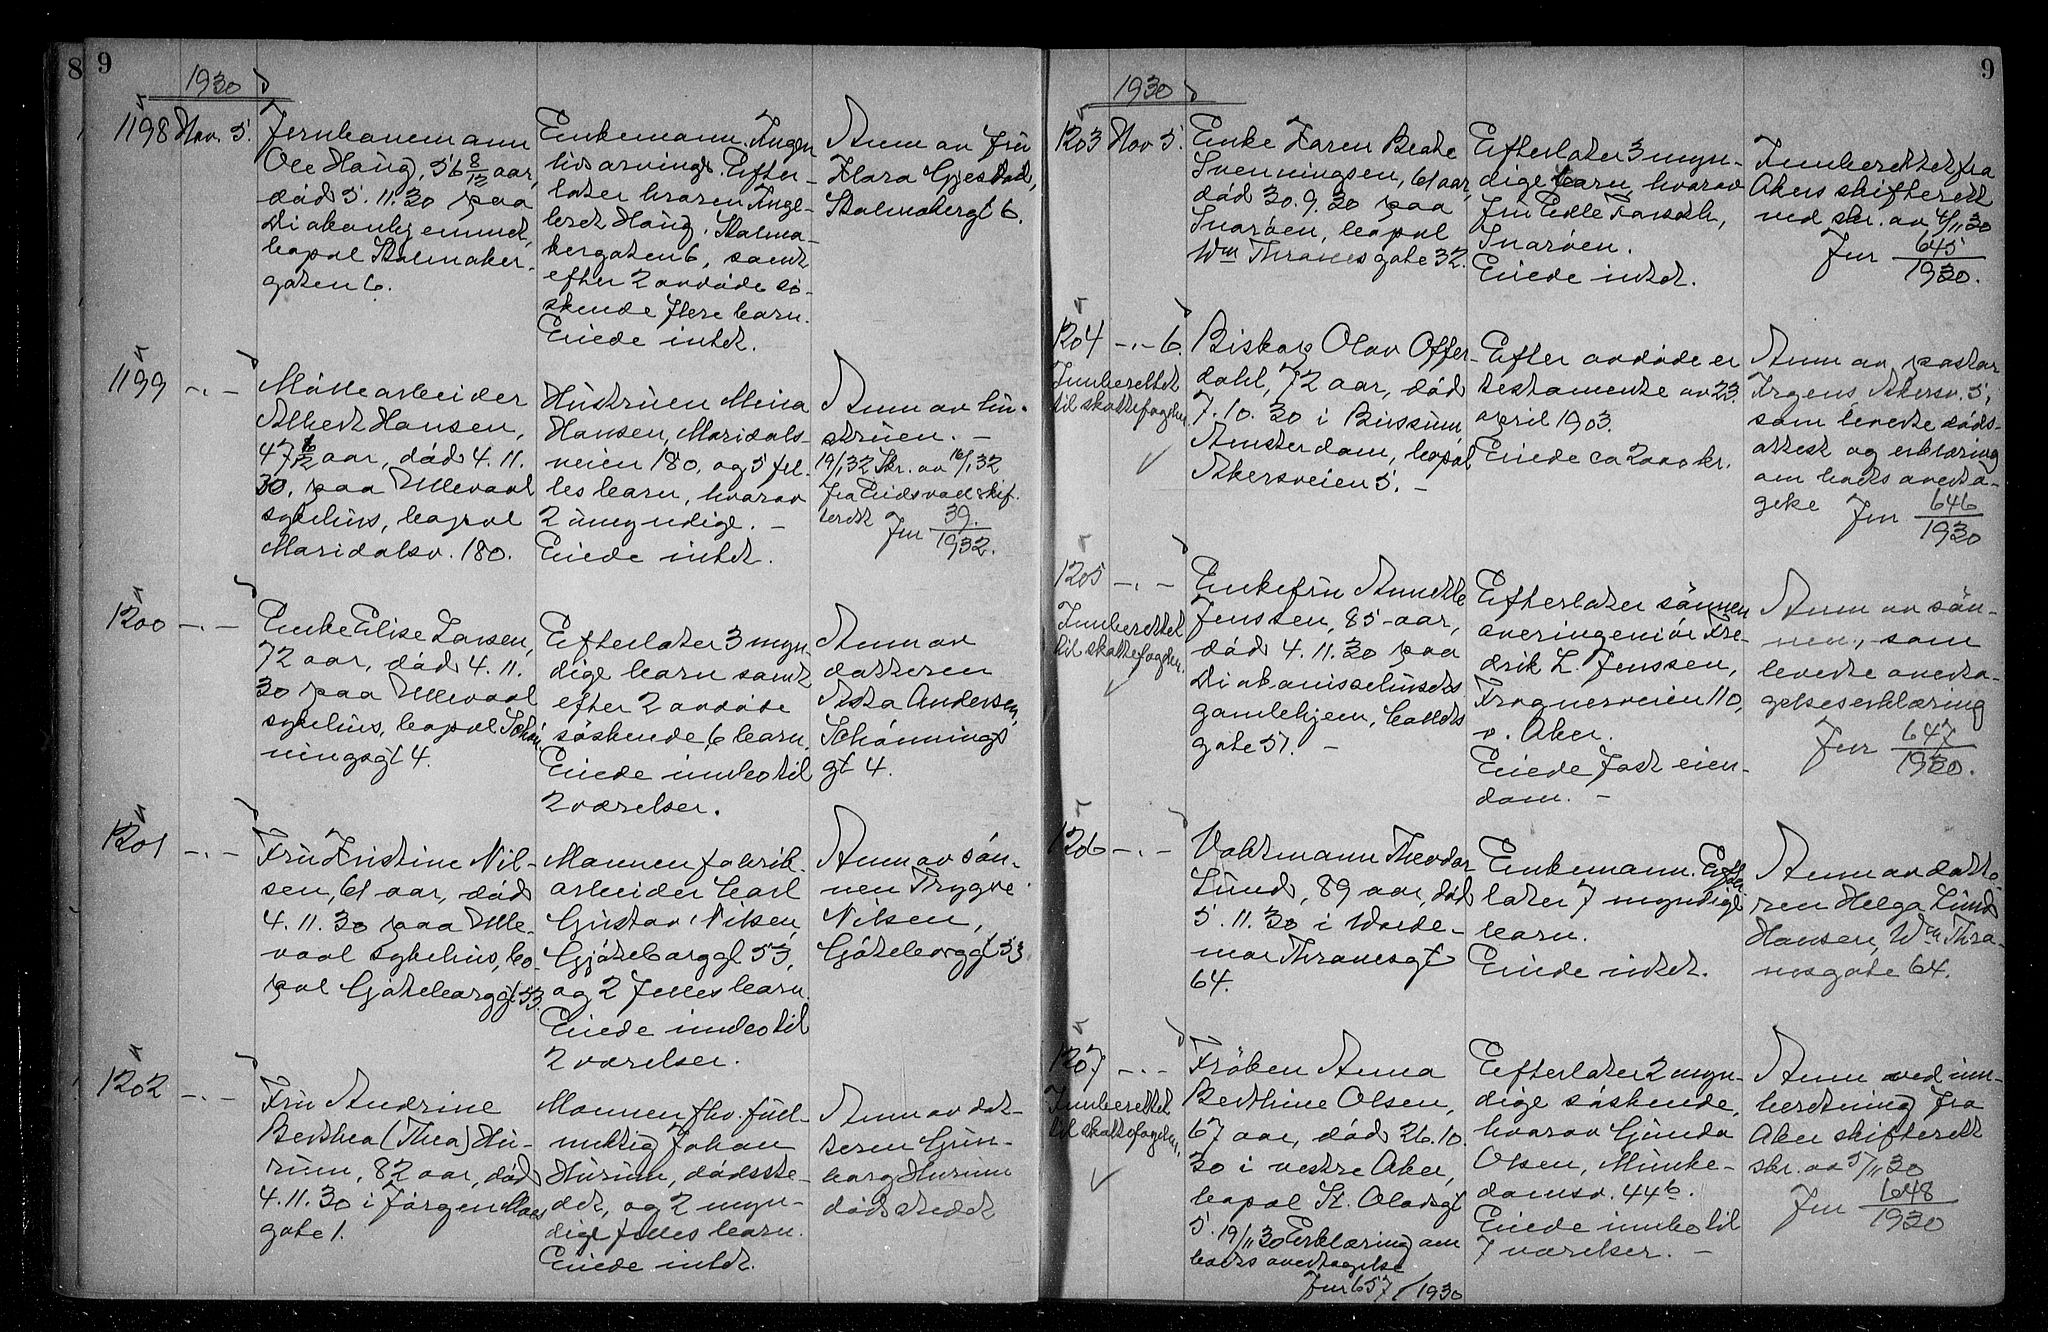 8
9
1930
1198 Nov. 5.
Jernbanemann
Ole Haug, 56 8/12 aar,
död 5.11.30 paa
Diakonhjemmet,
bopæl Stolmaker-
gaten 6.
Enkemann. Ingen
livsarving. Efter-
later broren Inge-
bret Haug, Stolma-
kergaten 6, samt
efter 2 avdöde sö-
skende flere barn.
Eiede intet.
Anm av fru
Klara Gjesdal,
Stolmakergt 6.
1199 -"-
Möllearbeider
Albert Hansen,
47 6/12 aar, död 4.11.
30. paa Ullevaal
sykehus, bopæl
Maridalsv. 180.
Hustruen Mina
Hansen, Maridals-
veien 180, og 5 fel-
les barn, hvorav
2 umyndige. -
Eiede intet.
Anm av hu-
struen. -
19/1 32 Skr. av 16/1 32
fra Eidsvoll skif-
terett Jnr 39/1932.
1200 -"-
Enke Elise Larsen,
72 aar, död 4.11.
30 paa Ullevaal
sykehus, bopæl Schön-
ningsgt 4.
Efterlater 3 myn-
dige barn samt
efter 2 avdöde
söskende 6 barn.
Eiede innbo til
2 værelser.
Anm av
datteren
Asta Andersen,
Schönnings
gt 4.
1201 -"-
Fru Kristine Nil-
sen, 61 aar, död
4.11.30 paa Ulle-
vaal sykehus, bo-
pæl Göteborggt 53.
Mannen fabrik-
arbeider Carl
Gustav Nilsen,
Gjöteborggt 53,
og 2 felles barn.
Eiede innbo til
2 værelser.
Anm av sön-
nen Trygve
Nilsen,
Göteborggt 53
1202 -"-
Fru Andrine
Berthea (Thea) Hu-
rum, 82 aar, död
4.11.30 i Jörgen Moes
gate 1.
Mannen fhv. full-
mektig Johan
Hurum, dödsste-
det, og 2 myn-
dige felles barn.
Eiede intet.
Anm av dat-
teren Gun-
borg Hurum
dödsstedet
9
1930
1203 Nov 5.
Enke Karen Beate
Svenningsen, 61 aar,
död 30.9.30 paa
Snaröen, bopæl
Wm Thranes gate 32.
Efterlater 3 myn-
dige barn, hvorav
fru Edle
Snaröen.
Eiede intet.
Innberettet fra
Akers skifterett
ved skr. av 4/11 30
Jnr 645/1930.
1204 -"- 6.
Innberettet
til skattefogden.
Biskop Olav Offer-
dahl, 72 aar, död
7.10.30 i Bussum,
Amsterdam, bopæl
Akersveien 5. -
Efter avdöde er
testamente av 23.
april 1903.
Eiede ca 2000 kr.
Anm av pastor
Irgens Akersv. 5,
som leverte döds-
attest og erklæring
om boets overta-
gelse Jnr 646/1930
1205 -"-
Innberettet
til skattefogden.
Enkefru Annette
Jenssen, 85 aar,
död 4.11.30 paa
Diakonissehusets
gamlehjem, Colletts
gate 51. -
Efterlater sönnen
overingeniör Fre-
drik L. Jenssen,
Frognerveien 110,
v. Aker.
Eiede fast eien-
dom. -
Anm av sön-
nen, som
leverte overta-
gelseserklæring
Jnr 647/1930.
1206 -"-
Vaktmann Theodor
Lund, 89 aar, död
5.11.30 i Walde-
mar Thranesgt
64.
Enkemann. Efter-
later 7 myndige
barn.
Eiede intet.
Anm av datte-
ren Helga Lund
Hansen, Wm Thra-
nesgate 64.
1207 -"-
Innberettet
til skattefogden.
Fröken Anna
Berthine Olsen,
67 aar, död 26.10.
30 i vestre Aker,
bopæl St. Olavsgt
5. 19/11 30 Erklæring om
boets overtagelse
Jnr 657/1930
Efterlater 2 myn-
dige söskende,
hvorav Gunda
Olsen, Munke-
damsv. 44b.
Eiede innbo til
7 værelser. -
Anm ved inn-
beretning fra
Aker skifterett
skr. av 5/11 30
Jnr 648/1930